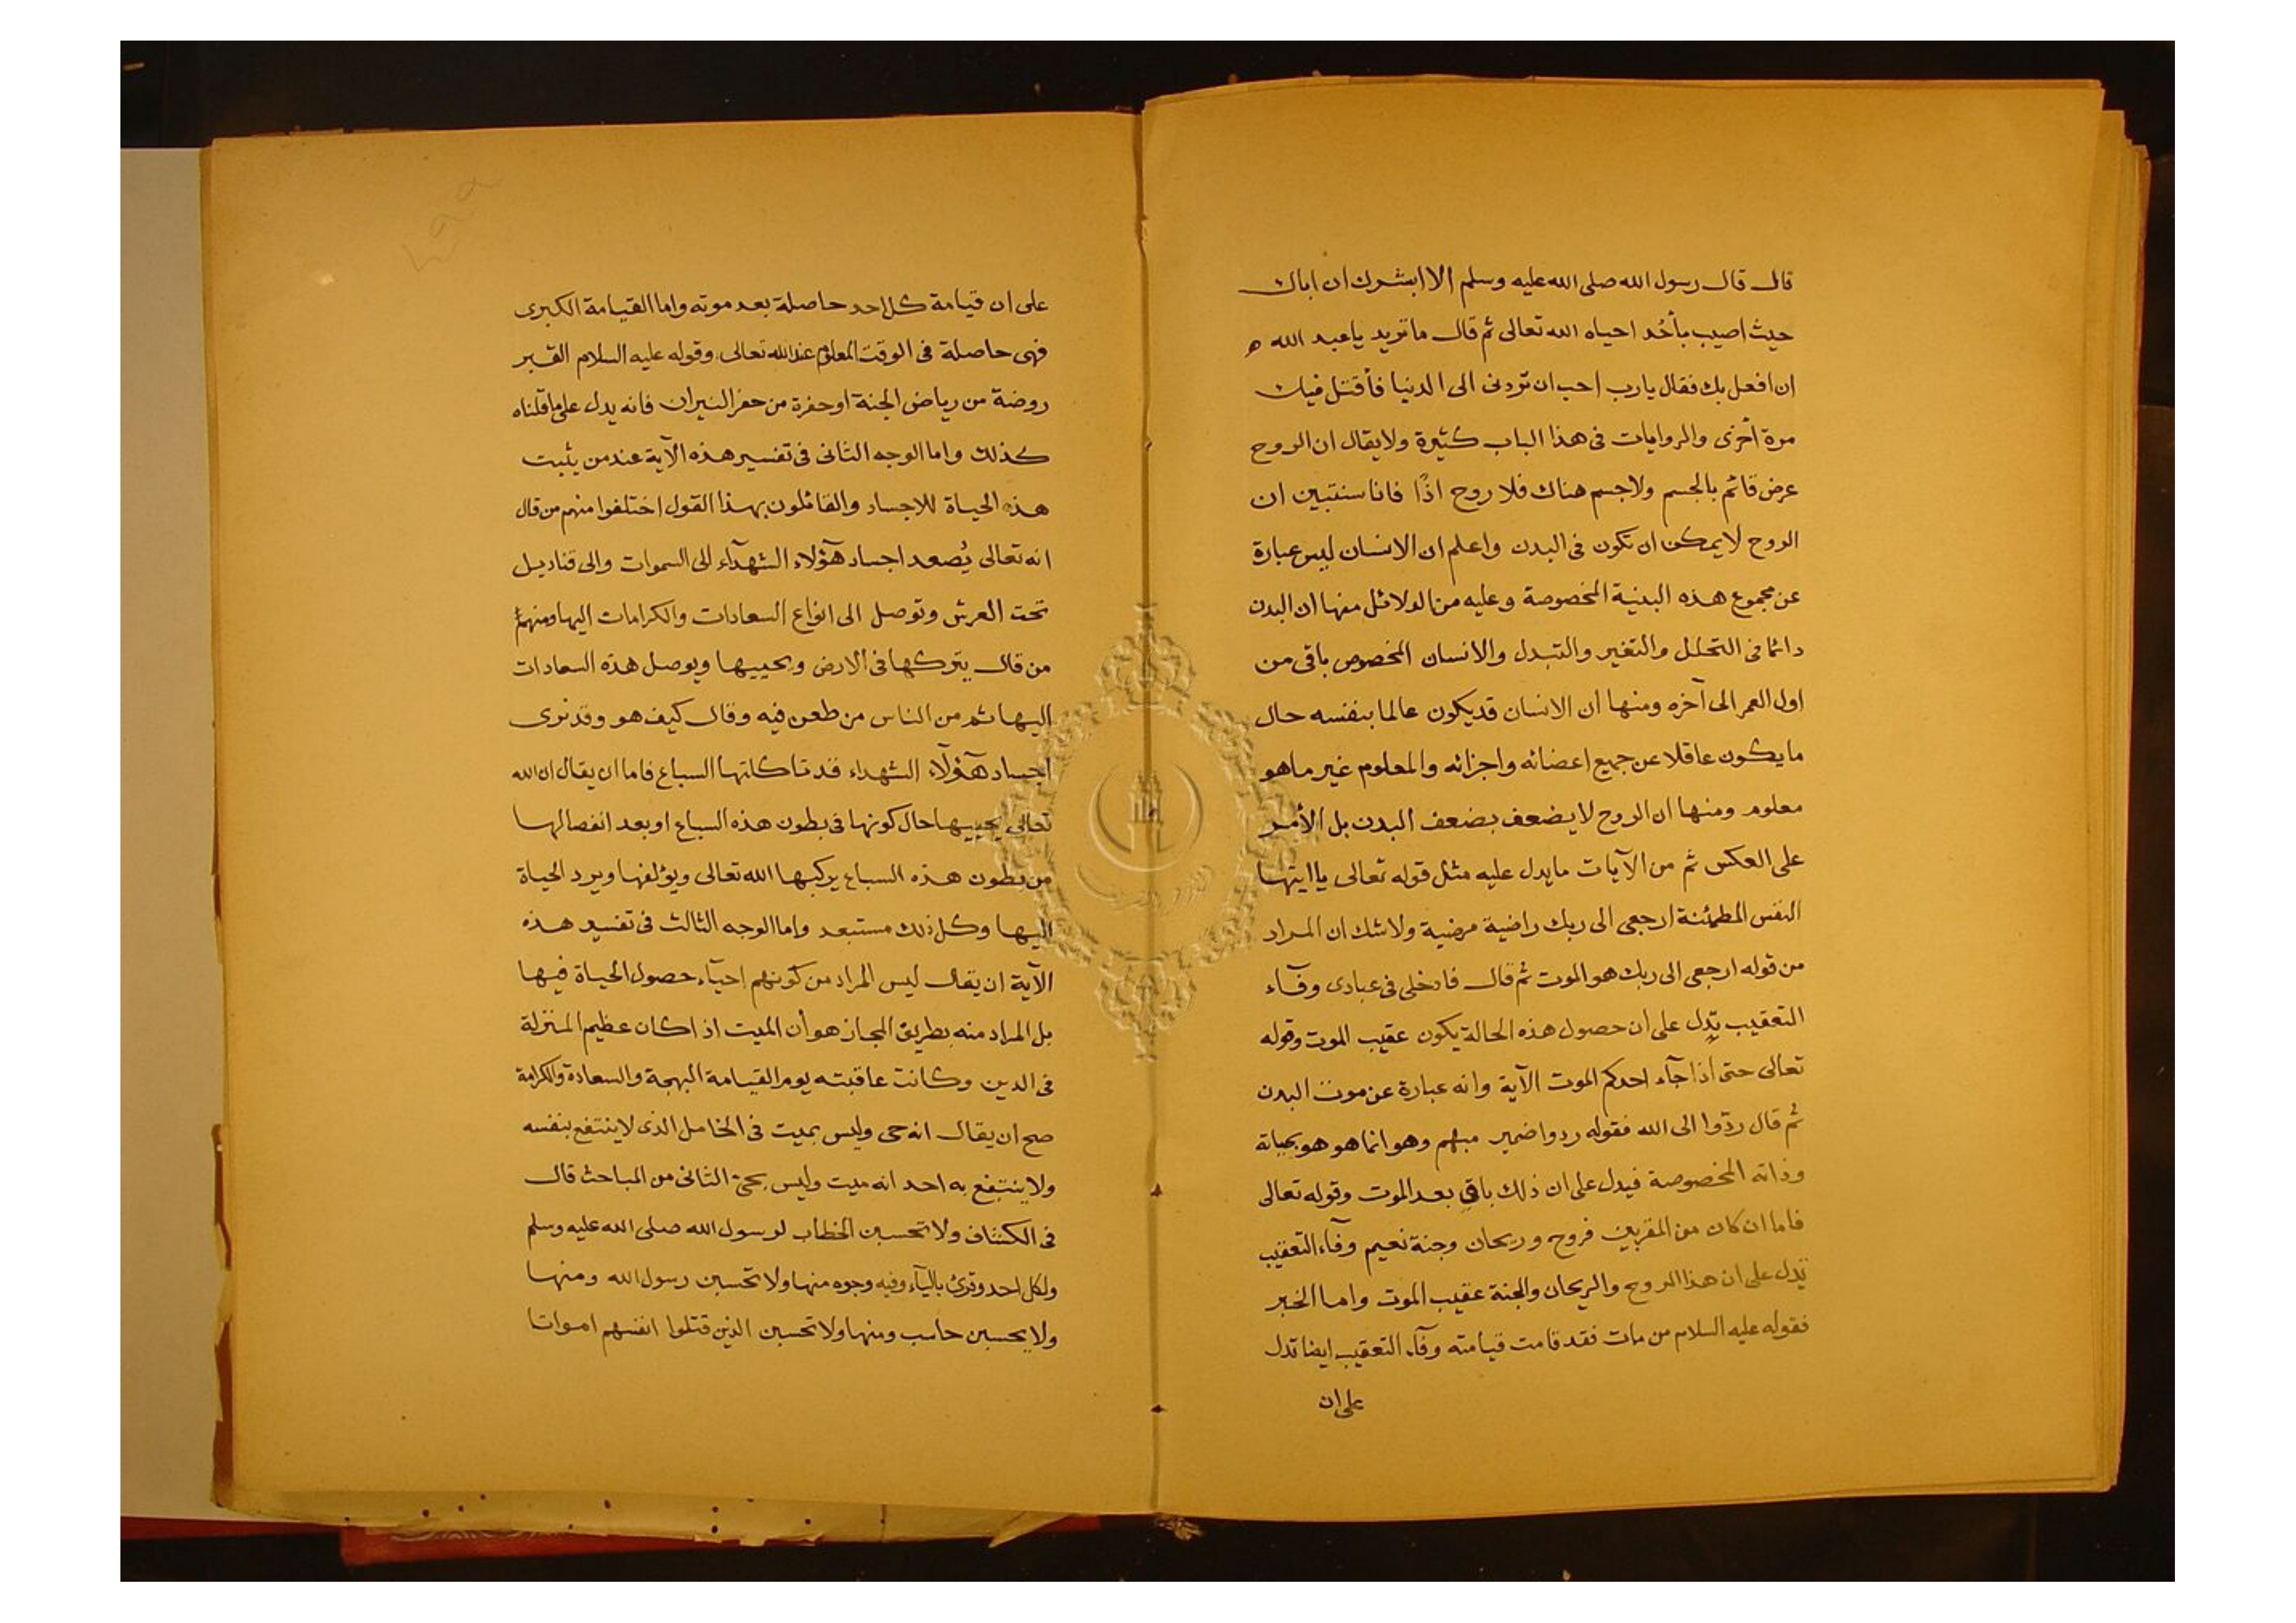 قال قال رسول الله صلى الله عليه وسلم الا ابشرك ان اباك
حيث اصيب بأحُد احياه الله تعالى ثم قال ما تريد يا عبد الله
ان افعل بك فقال يا رب احب ان تردنى الى الدنيا فأقتل فيك
مرة أخرى والروايات فى هذا الباب كثيرة ولا يقال ان الروح
عرض قائم بالجسم ولا جسم هناك فلا روح اذًا فانا سنتبين ان
الروح لا يمكن ان تكون فى البدن واعلم ان الانسان ليس عبارة
عن مجموع هذه البنية المخصوصة وعليه من الدلائل منها ان البدن
دائما فى التحلل والتغير والتبدل والانسان المخصوص باقى من
اول العمر الى آخره ومنها ان الانسان قد يكون عالما بنفسه حال
ما يكون عاقلا عن جميع اعضائه واجزائه والمعلوم غير ما هو
معلوم ومنها ان الروح لا يضعف بضعف البدن بل الأمر
على العكس ثم من الآيات ما يدل عليه مثل قوله تعالى يا ايتها
النفس المطمئنة ارجعى الى ربك راضية مرضية ولا شك ان المراد
من قوله ارجعى الى ربك هو الموت ثم قال فادخلى فى عبادى وفآء
التعقيب تدل على ان حصول هذه الحالة يكون عقيب الموت وقوله
تعالى حتى اذا جآء احدكم الموت الآية وانه عبارة عن موت البدن
ثم قال ردّوا الى الله فقوله ردوا ضمير مبهم وهو انما هو هو بحياته
وذاته المخصوصة فيدل على ان ذلك باقٍ بعد الموت وقوله تعالى
فاما ان كان من المقربين فروح وريحان وجنة نعيم وفآء التعقيب
تدل على ان هذا الروح والريحان والجنة عقيب الموت واما الخبر
فقوله عليه السلام من مات فقد قامت قيامته وفآء التعقيب ايضا تدل
على ان
على ان قيامة كل احد حاصلة بعد موته واما القيامة الكبرى
فهى حاصلة فى الوقت المعلوم عند الله تعالى وقوله عليه السلام القبر
روضة من رياض الجنة او حفرة من حفر النيران فانه يدل على ما قلناه
كذلك واما الوجه الثانى فى تفسير هذه الآية عند من يثبت
هذه الحياة للاجساد والقائلون بهذا القول اختلفوا منهم من قال
انه تعالى يُصعد اجساد هؤلاء الشهدآء الى السموات والى قناديل
تحت العرش وتوصل الى انواع السعادات والكرامات اليها ومنهم
من قال يتركها فى الارض ويحييها ويوصل هذه السعادات
اليها ثم من الناس من طعن فيه وقال كيف هو وقد نرى
اجساد هؤلآء الشهداء قد تاكلتها السباع فاما ان يقال ان الله
تعالى يحييها حال كونها فى بطون هذه السباع او بعد انفصالها
من بطون هذه السباع يركبها الله تعالى ويؤلفها ويرد الحياة
اليها وكل ذلك مستبعد واما الوجه الثالث فى تفسير هذه
الآية ان يقال ليس المراد من كونهم احيآء حصول الحياة فيها
بل المراد منه بطريق المجاز هو أن الميت اذا كان عظيم المنزلة
فى الدين وكانت عاقبته يوم القيامة البهجة والسعادة والكرامة
صح ان يقال انه حى وليس بميت فى الخامل الذى لا ينتفع بنفسه
ولا ينتفع به احد انه ميت وليس بحىّ الثانى من المباحث قال
فى الكشاف ولا تحسبن الخطاب لرسول الله صلى الله عليه وسلم
ولكل احد وقرئ باليآء وفيه وجوه منها ولا تحسبن رسول الله ومنها
ولا يحسبن حاسب ومنها ولا تحسبن الذين قتلوا انفسهم امواتا